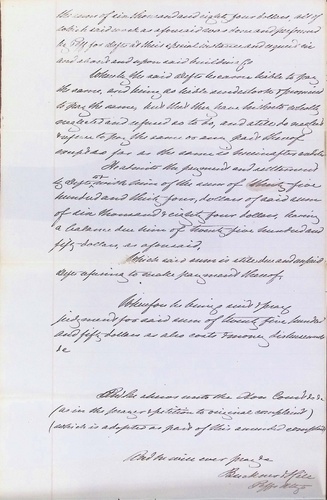 the sum of six thousand and eighty four dollars, all of
which said work as aforesaid was done and performed
by Plff for defts at their special instance and request in
and about and upon said building &c
Whereby the said defts became liable to pay
the same, and being so liable undertook & promised
to pay the same, but that they have hitherto wholly
neglected and refused so to do, and still do neglect
& refuse to pay the same or any part thereof
except as far as the same is hereinafter
He admits the payment and settlement
by defts with him of the sum of thirty five
hundred and thirty four, dollars of said sum
of six thousand & eighty four dollars, leaving
a balance due him of twenty five hundred and
fifty dollars, as aforesaid,
Which said sum is still due and unpaid
defts refusing to make payment thereof.
Wherefore he brings suit & prays
judgment for said sum of twenty five hundred
and fifty dollars as also costs & money disbursements
&c
unto the Hon Court &c &c
(as in the prayer & petition to original complaint)
(which is adopted as part of this amended complaint)
And he will ever pray &c
Buckner & Hill
Plffs Attys